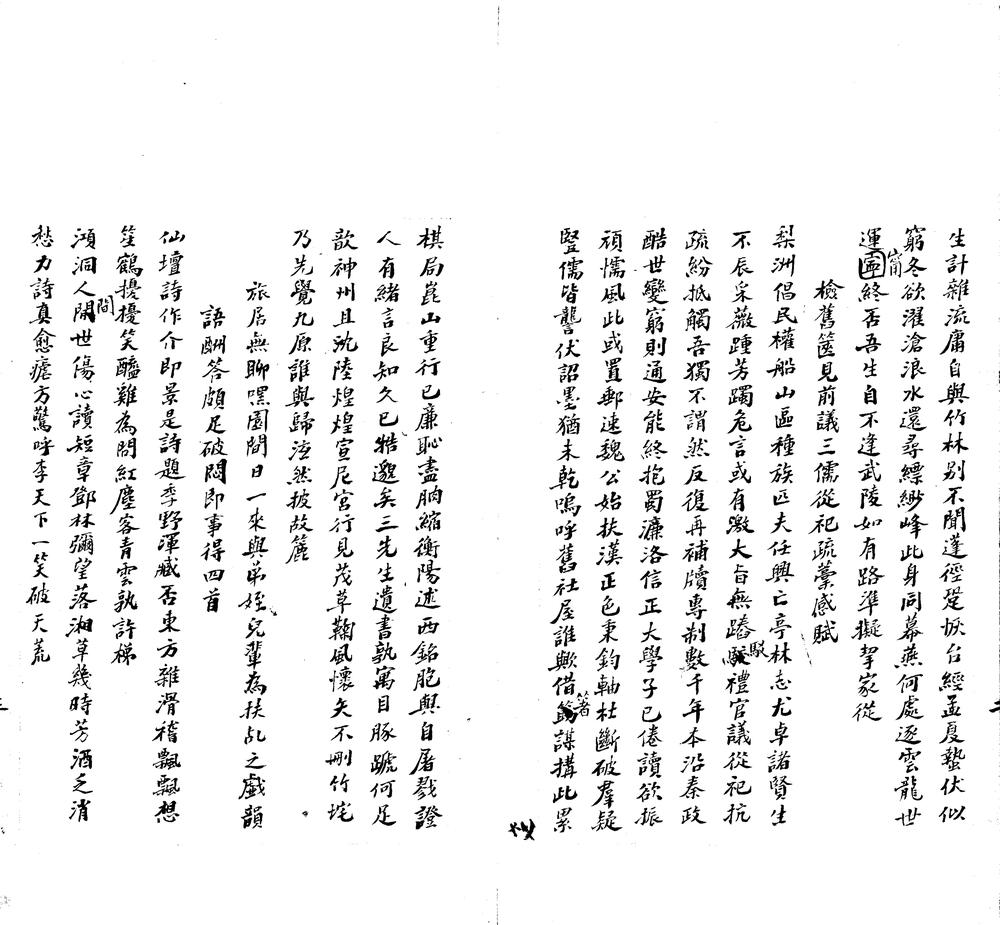 生計雜流庸自與竹林別不聞蓬徑跫恢台經孟夏蟄伏似
窮冬欲濯滄浪水還尋縹緲峰此身同幕燕何處逐雲龍世
運甯終否吾生自不逢武陵如有路準擬挈家從
檢舊篋見前議三儒從祀疏藁感賦
梨洲倡民權船山區種族匹夫任興亡亭林志尤卓諸賢生
不辰采薇踵芳躅危言或有激大旨無踳駁禮官議從祀抗
疏紛抵觸吾獨不謂然反復再補牘專制數千年本沿秦政
酷世變窮則通安能終抱蜀濂洛信正大學子已倦讀欲振
頑懦風此或置郵速魏公始扶漢正色秉鈞軸杜斷破羣疑
豎儒皆讋伏詔墨猶未乾嗚呼舊社屋誰歟借箸謀搆此累
棋局崑山重行已廉恥盡朒縮衡陽述西銘胞與自屠戮證
人有緒言良知久已牿邈矣三先生遺書孰寓目豚蹏何足
歆神州且沈陸煌煌宣尼宮行見茂草鞠風懷矢不刪竹垞
乃先覺九原誰與歸泫然披故簏
旅居無聊嘿園間日一來與弟姪兒輩為扶乩之戲韻
語酬答頗足破悶即事得四首
仙壇詩作介即景是詩題季野渾臧否東方雜滑稽飄飄想
笙鶴擾擾笑醯雞為問紅塵客青雲孰許梯
澒洞人間世傷心讀短章鄧林彌望落湘草幾時芳酒乏消
愁力詩真愈瘧方驚呼李天下一笑破天荒